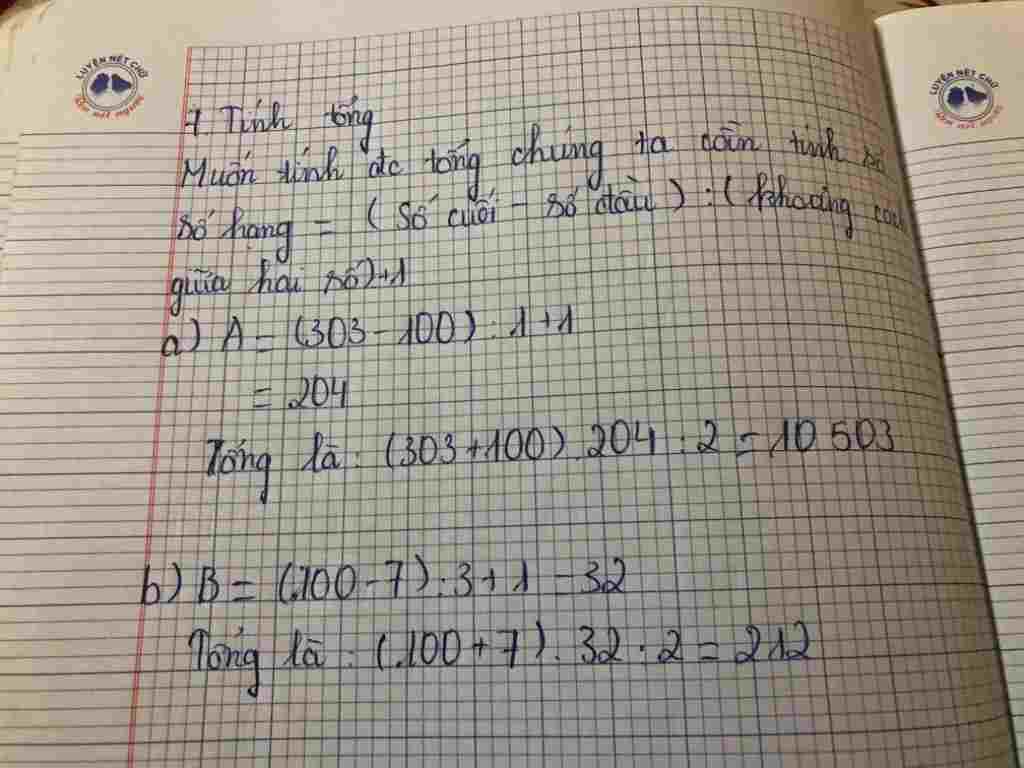 LUYỆN NÉT CHỮ
RÈN NẾT NGƯỜI
LUYỆN NÉT CHỮ
RÈN NẾT NGƯỜI
7. Tính tổng
Muốn tính đc tổng chúng ta cần tính số
số hạng = (số cuối - số đầu) : (khoảng cách
giữa hai số)+1
a) A = (303 - 100) : 1+1
= 204
Tổng là : (303+100) . 204 : 2 = 10 503
b) B = (100-7) : 3+1 = 32
Tổng là : (100+7) . 32 : 2 = 212